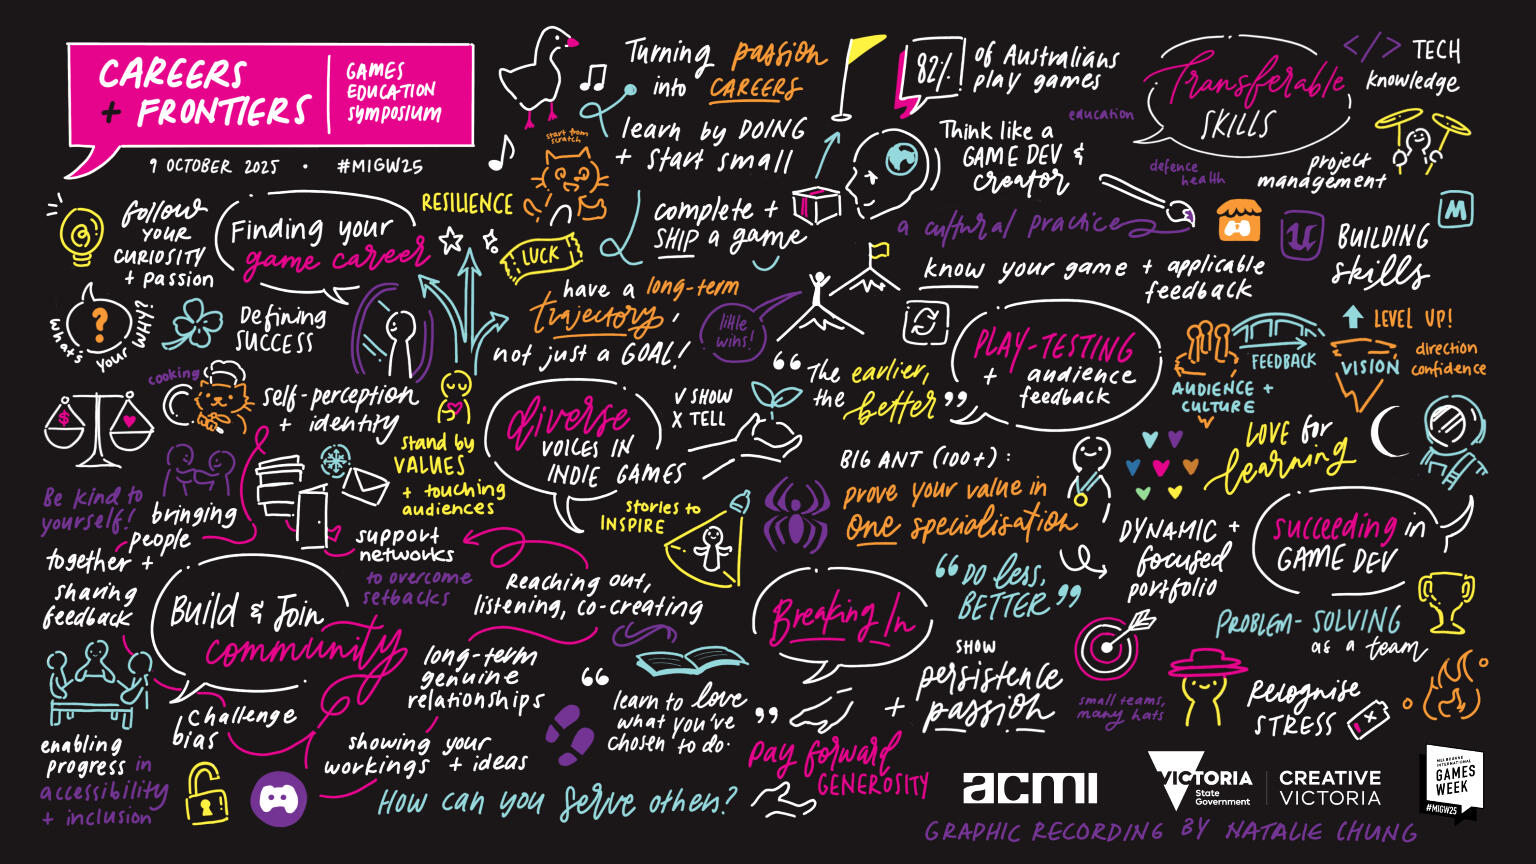 CAREERS
+ FRONTIERS
GAMES
EDUCATION
SYMPOSIUM
9 OCTOBER 2025 · #MIGW25
Turning passion
into CAREERS
learn by DOING
+ start small
start from
scratch
complete +
SHIP a game
82%
of Australians
play games
Think like a
GAME DEV &
creator
a cultural practice
Transferable
SKILLS
</> TECH
knowledge
education
defence
health
project
management
M
U
BUILDING
skills
follow
YOUR
CURIOSITY
+ passion
Finding your
game career
RESILIENCE
LUCK
?
what's your WHY?
Defining
SUCCESS
have a long-term
trajectory,
not just a GOAL!
little
wins!
know your game + applicable
feedback
PLAY-TESTING
+ audience
feedback
"The earlier,
the better"
FEEDBACK
AUDIENCE +
CULTURE
LEVEL UP!
VISION
direction
confidence
LOVE for
learning
cooking
self-perception
+ identity
$
stand by
VALUES
+ touching
audiences
diverse
VOICES IN
INDIE GAMES
√ SHOW
X TELL
stories to
INSPIRE
BIG ANT (100+):
prove your value in
one specialisation
"DO less,
BETTER"
DYNAMIC +
focused
portfolio
succeeding in
GAME DEV
PROBLEM-SOLVING
as a team
small teams,
many hats
Recognise
STRESS
x
Be kind to
yourself!
bringing
people
together +
sharing
feedback
support
networks
to overcome
setbacks
Reaching out,
listening, co-creating
Build & Join
community
long-term
genuine
relationships
challenge
bias
enabling
progress in
accessibility
+ inclusion
showing your
workings + ideas
"learn to love
what you've
chosen to do."
Breaking In
SHOW
persistence
+ passion
pay forward
GENEROSITY
How can you serve others?
acmi
VICTORIA
State
Government
CREATIVE
VICTORIA
MELBOURNE
INTERNATIONAL
GAMES
WEEK
#MIGW25
GRAPHIC RECORDING BY NATALIE CHUNG